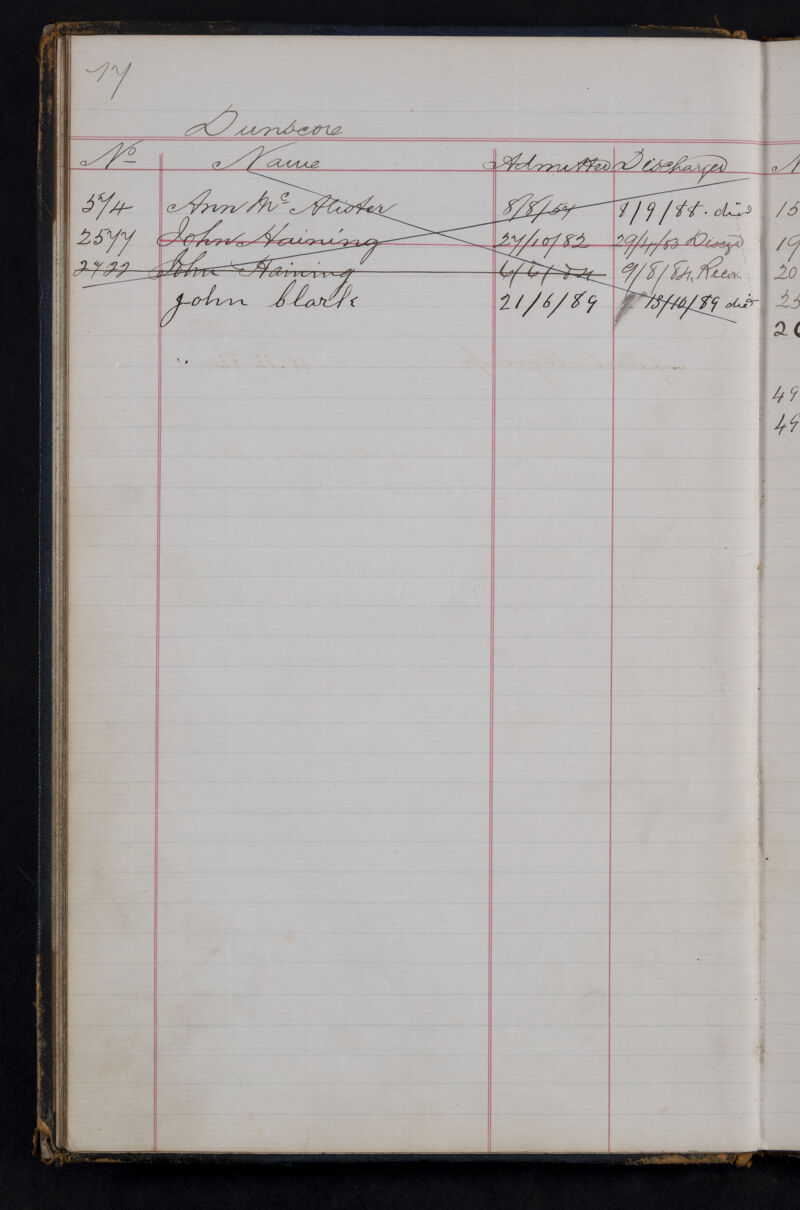 17
Dunscore
No Name Admitted Discharged
574 Ann Mc Alister 8/8/54 8/9/88. died
2577 John Haining 27/10/82 29/4/83 Discgd
2722 John Haining 6/6/84 9/8/84 Recov.
John Clark 21/6/89 13/10/89 died
15
19
20
25
20
49
49